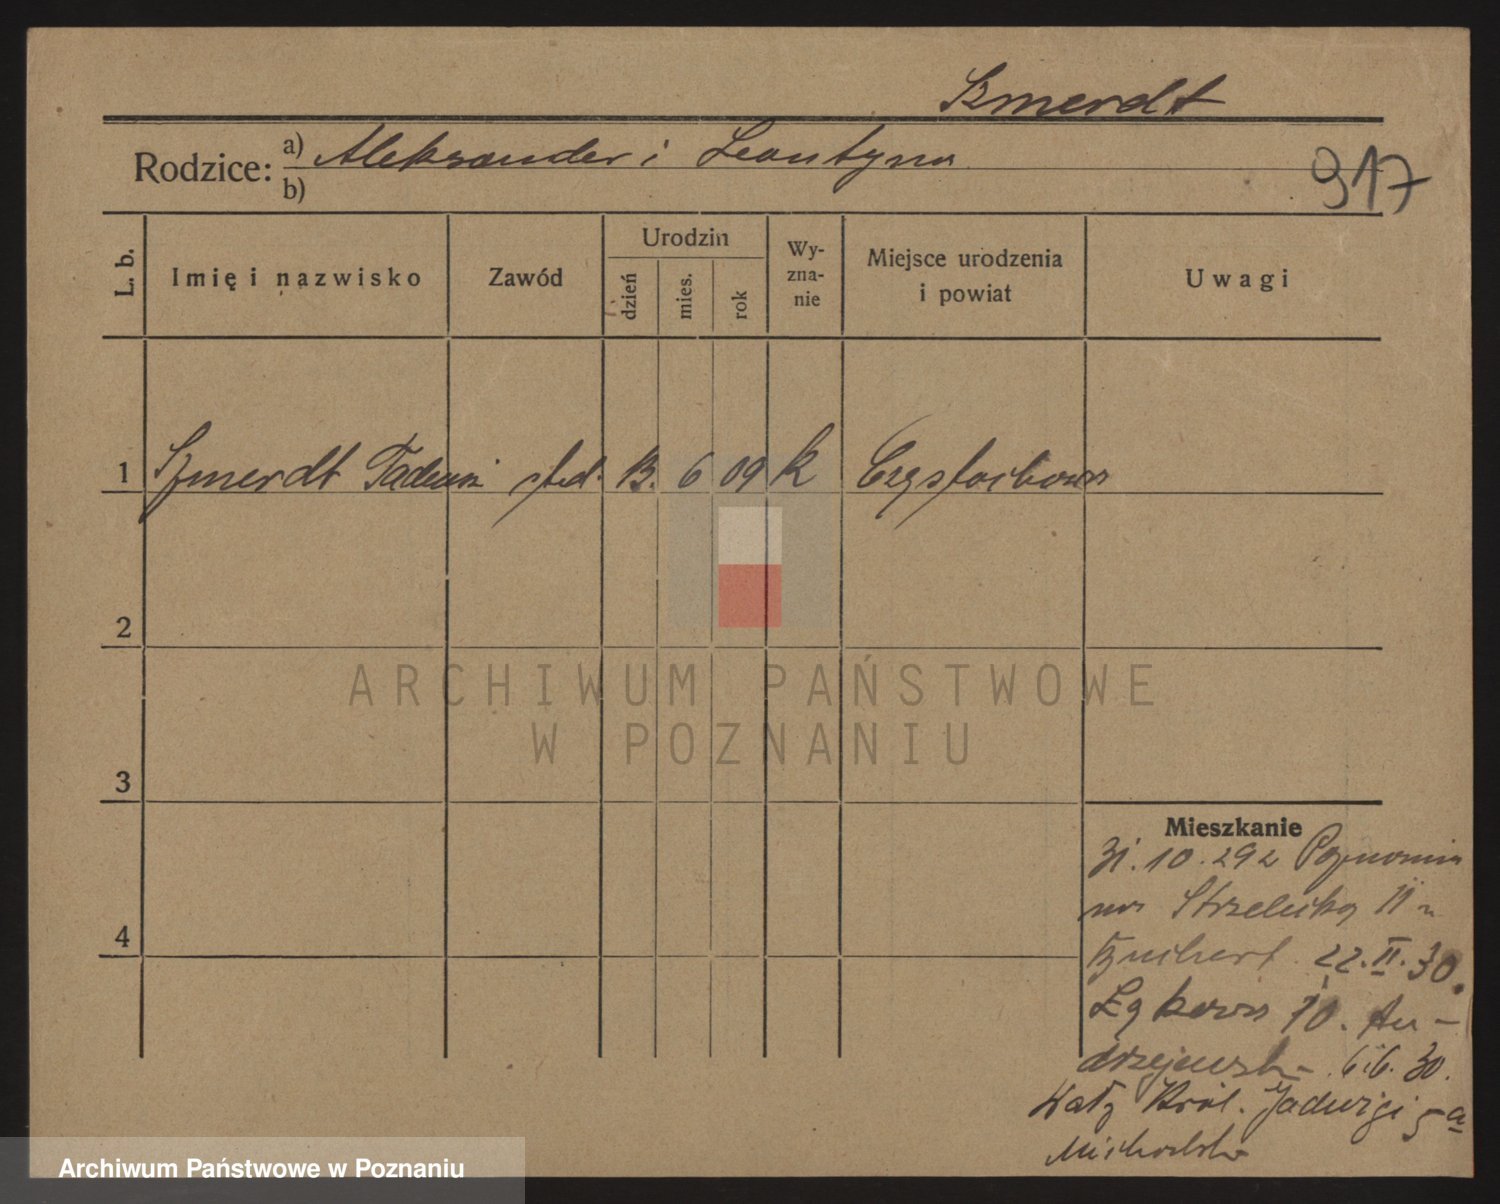 Szmerdt
Rodzice: a) Aleksander i Leontyna
b)
917
L. b.
Imię i nazwisko
Zawód
Urodzin
dzień
mies.
rok
Wy-
zna-
nie
Miejsce urodzenia
i powiat
Uwagi
1 Szmerdt Tadeusz stud. 13. 6 09 k Częstochowa
2
3
4
Mieszkanie
31. 10. 29 z Poznania
na Strzelecką 11 u
22. II. 30.
Łąkowa 10. An-
drzejewsk- 6.6. 30.
Wały Król. Jadwigi 5a
Michalska
ARCHIWUM PAŃSTWOWE
W POZNANIU
Archiwum Państwowe w Poznaniu